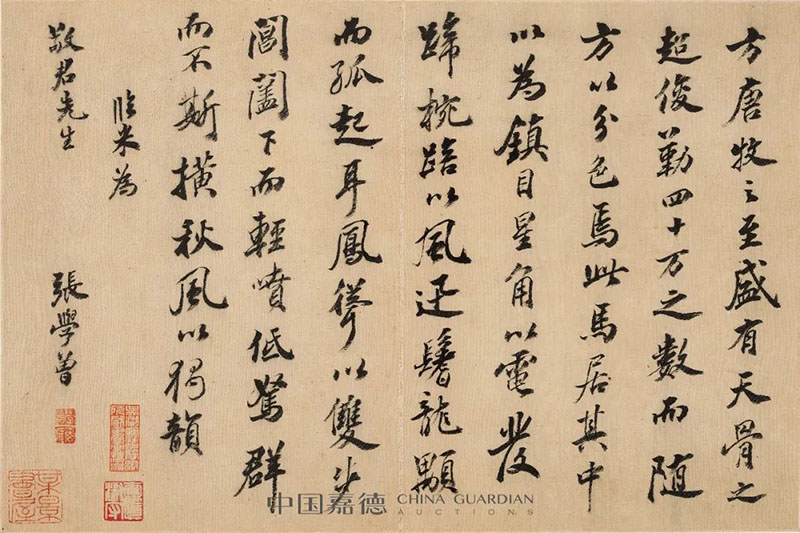 方唐牧之至盛有天骨之
超俊勒四十万之數而随
方以分色焉此馬居其中
以為鎮目星角以電發
蹄椀踣以風迅鬐龍顒
而孤起耳鳳聳以雙步
閶闔下而輕噴低駑群
而不斯橫秋風以獨韻
臨米為
敬君先生
張學曾
中国嘉德 CHINA GUARDIAN
AUCTIONS